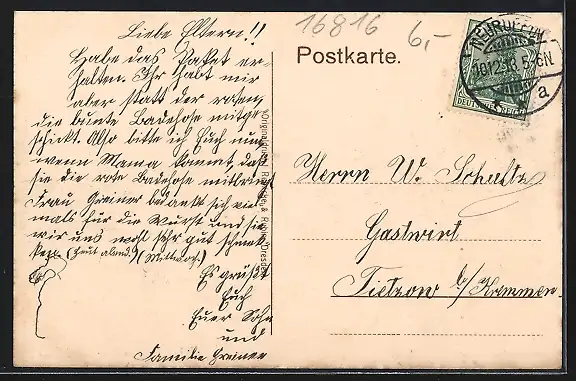 Liebe Eltern!!
Habe das Paket er-
halten. Ihr habt mir
aber statt der rosen,
die bunte Badehose mitge-
schickt. Also bitte ich Euch nun
wenn Mama kommt, daß
sie die rote Badehose mitbringt
Frau Greiner bedankt sich viel-
mals für die Wurst und sie
wir uns wohl sehr gut schmek-
ken. (heut abend.) (Mittwoch.)
Es grüßt
Euch
Euer Sohn
und
Familie Greiner
16816
6,-
Postkarte.
NEURUPPIN
10.12.13. 5-6N
a
DEUTSCHES REICH
Herrn W. Schultz
Gastwirt
Tietzow b/Kremmen.